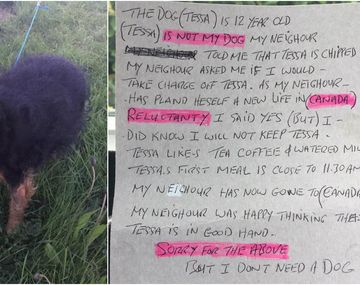 THE DOG (TESSA) IS 12 YEAR OLD
(TESSA) IS NOT MY DOG MY NEIGHOUR
TOLD ME THAT TESSA IS CHIPPED
MY NEIGHOUR ASKED ME IF I WOULD -
TAKE CHARGE OFF TESSA. AS MY NEIGHOUR -
HAS PLAND HESELF A NEW LIFE IN (CANADA)
RELUCTANTY I SAID YES (BUT) I -
DID KNOW I WILL NOT KEEP TESSA.
TESSA LIKE-S TEA COFFEE & WATERED MIL
TESSA.S FIRST MEAL IS CLOSE TO 11.30AM
MY NEIGHOUR HAS NOW GONE TO (CANADA
MY NEIGHOUR WAS HAPPY THINKING THA
TESSA IS IN GOOD HAND.
SORRY FOR THE ABOVE
BUT I DON'T NEED A DOG